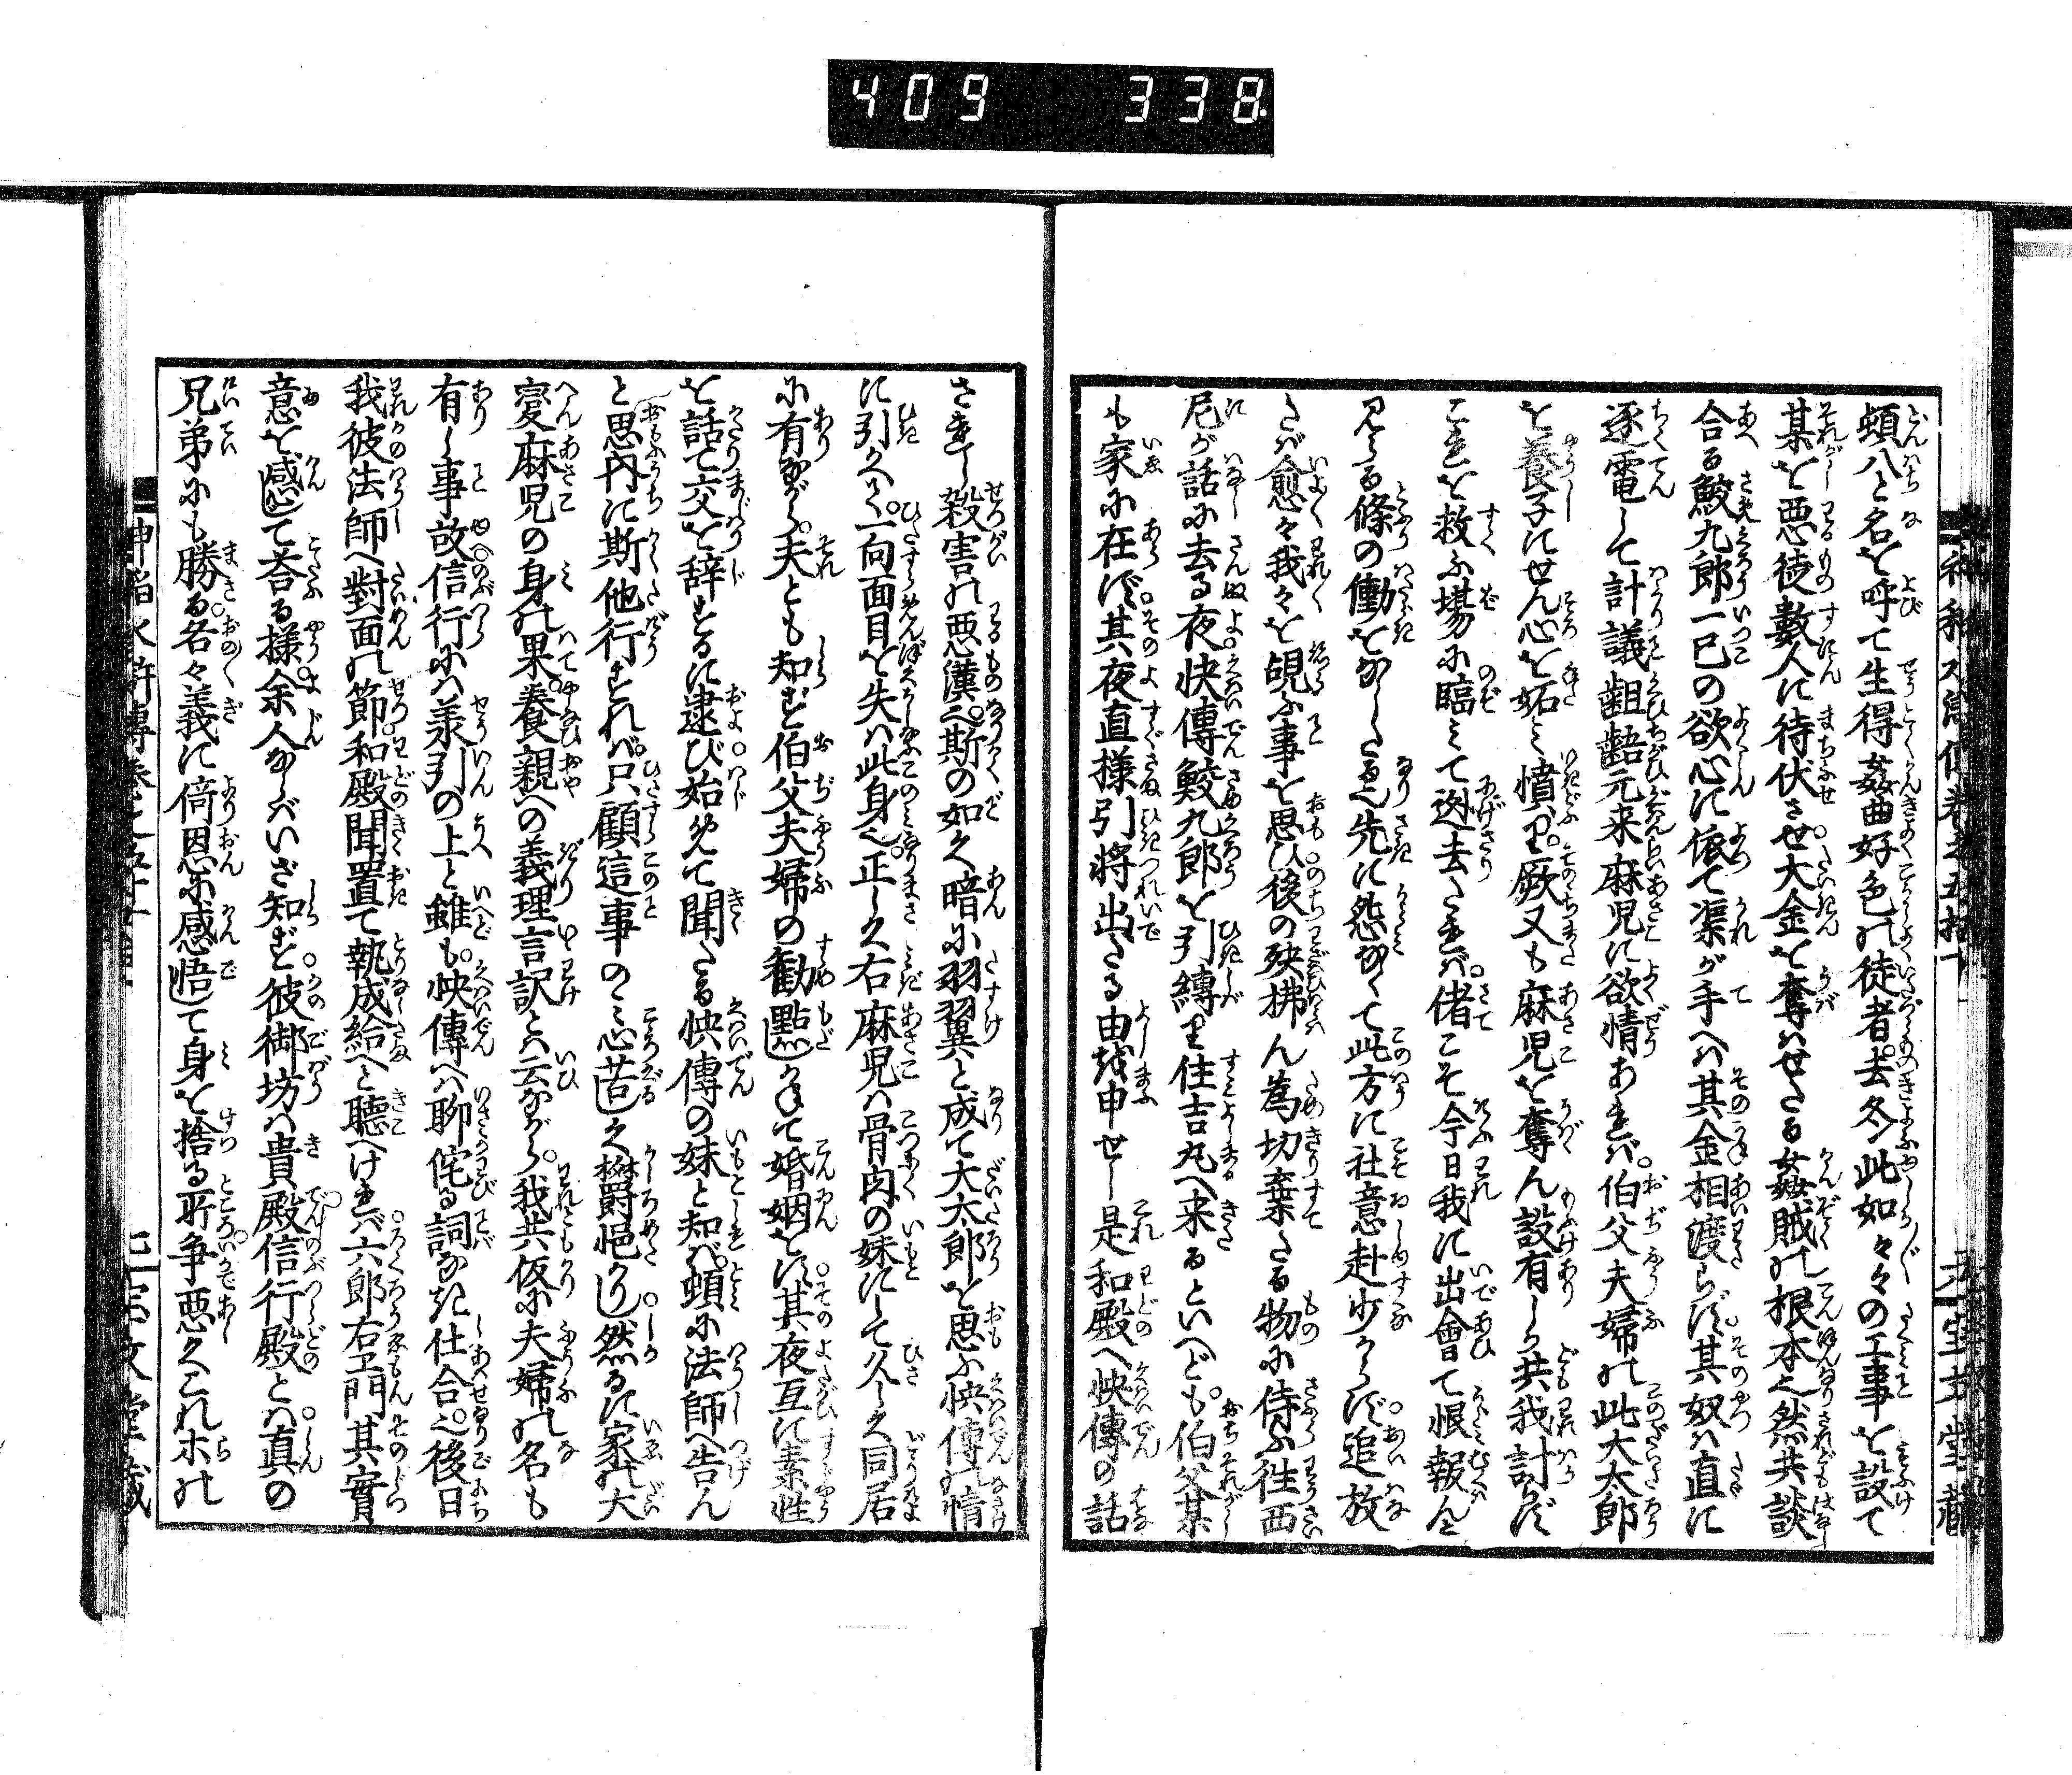 409 338
頓八と名を呼て生得姦曲好色の徒者去冬此如々々の工事を設て
某を悪徒數人に待伏させ大金を奪はせたる姦賊の根本也然共談
合る鮫九郎一己の欲心に依て渠が手へは其金相渡らず其奴は直に
逐電して計議齟齬元来麻児に欲情あれば伯父夫婦の此大太郎
を養子にせん心を妬み憤り厥又も麻児を奪ん設有しか共我計らず
これを救ふ場に臨みて迯去たれば偖こそ今日我に出會て恨報んと
見る條の働をなしたる也先に怨なくて此方に社意赴少からず追放
たば愈々我々を覘ふ事を思ひ後の殃拂ん為切棄たる物に侍ふ徃西
尼が話に去る夜快傳鮫九郎を引縛り住吉丸へ来るといへども伯父某
も家に在ず其夜直様引將出たる由越申せし是和殿へ快傳の話
されし殺害の悪漢也斯の如く暗に羽翼と成て大太郎を思ふ快傳の情
に引かへて一向面目を失ふ此身也正しく右麻児は骨肉の妹にして久しく同居
に有ながら夫とも知ず伯父夫婦の勸點しかねて婚姻をす其夜互に素性
を話て交を辞するに逮び始めて聞たる快傳の妹と知ば頓に法師へ告ん
と思内に斯他行すれば只顧這事のみ心苦しく欝悒かりし然るに家の大
變麻児の身の果養親への義理言訳とは云ながら我共仮に夫婦の名も
有し事故信行には羕引の上と雖も快傳へは聊侘る詞なき仕合也後日
我彼法師へ對面の節和殿聞置て執成給へと聴へければ六郎右エ門其實
意を感じて荅る様余人ならばいざ知ず彼御坊は貴殿信行殿とは真の
兄弟にも勝る名々義に倚恩に感悟して身を捨る所争悪くこれホの